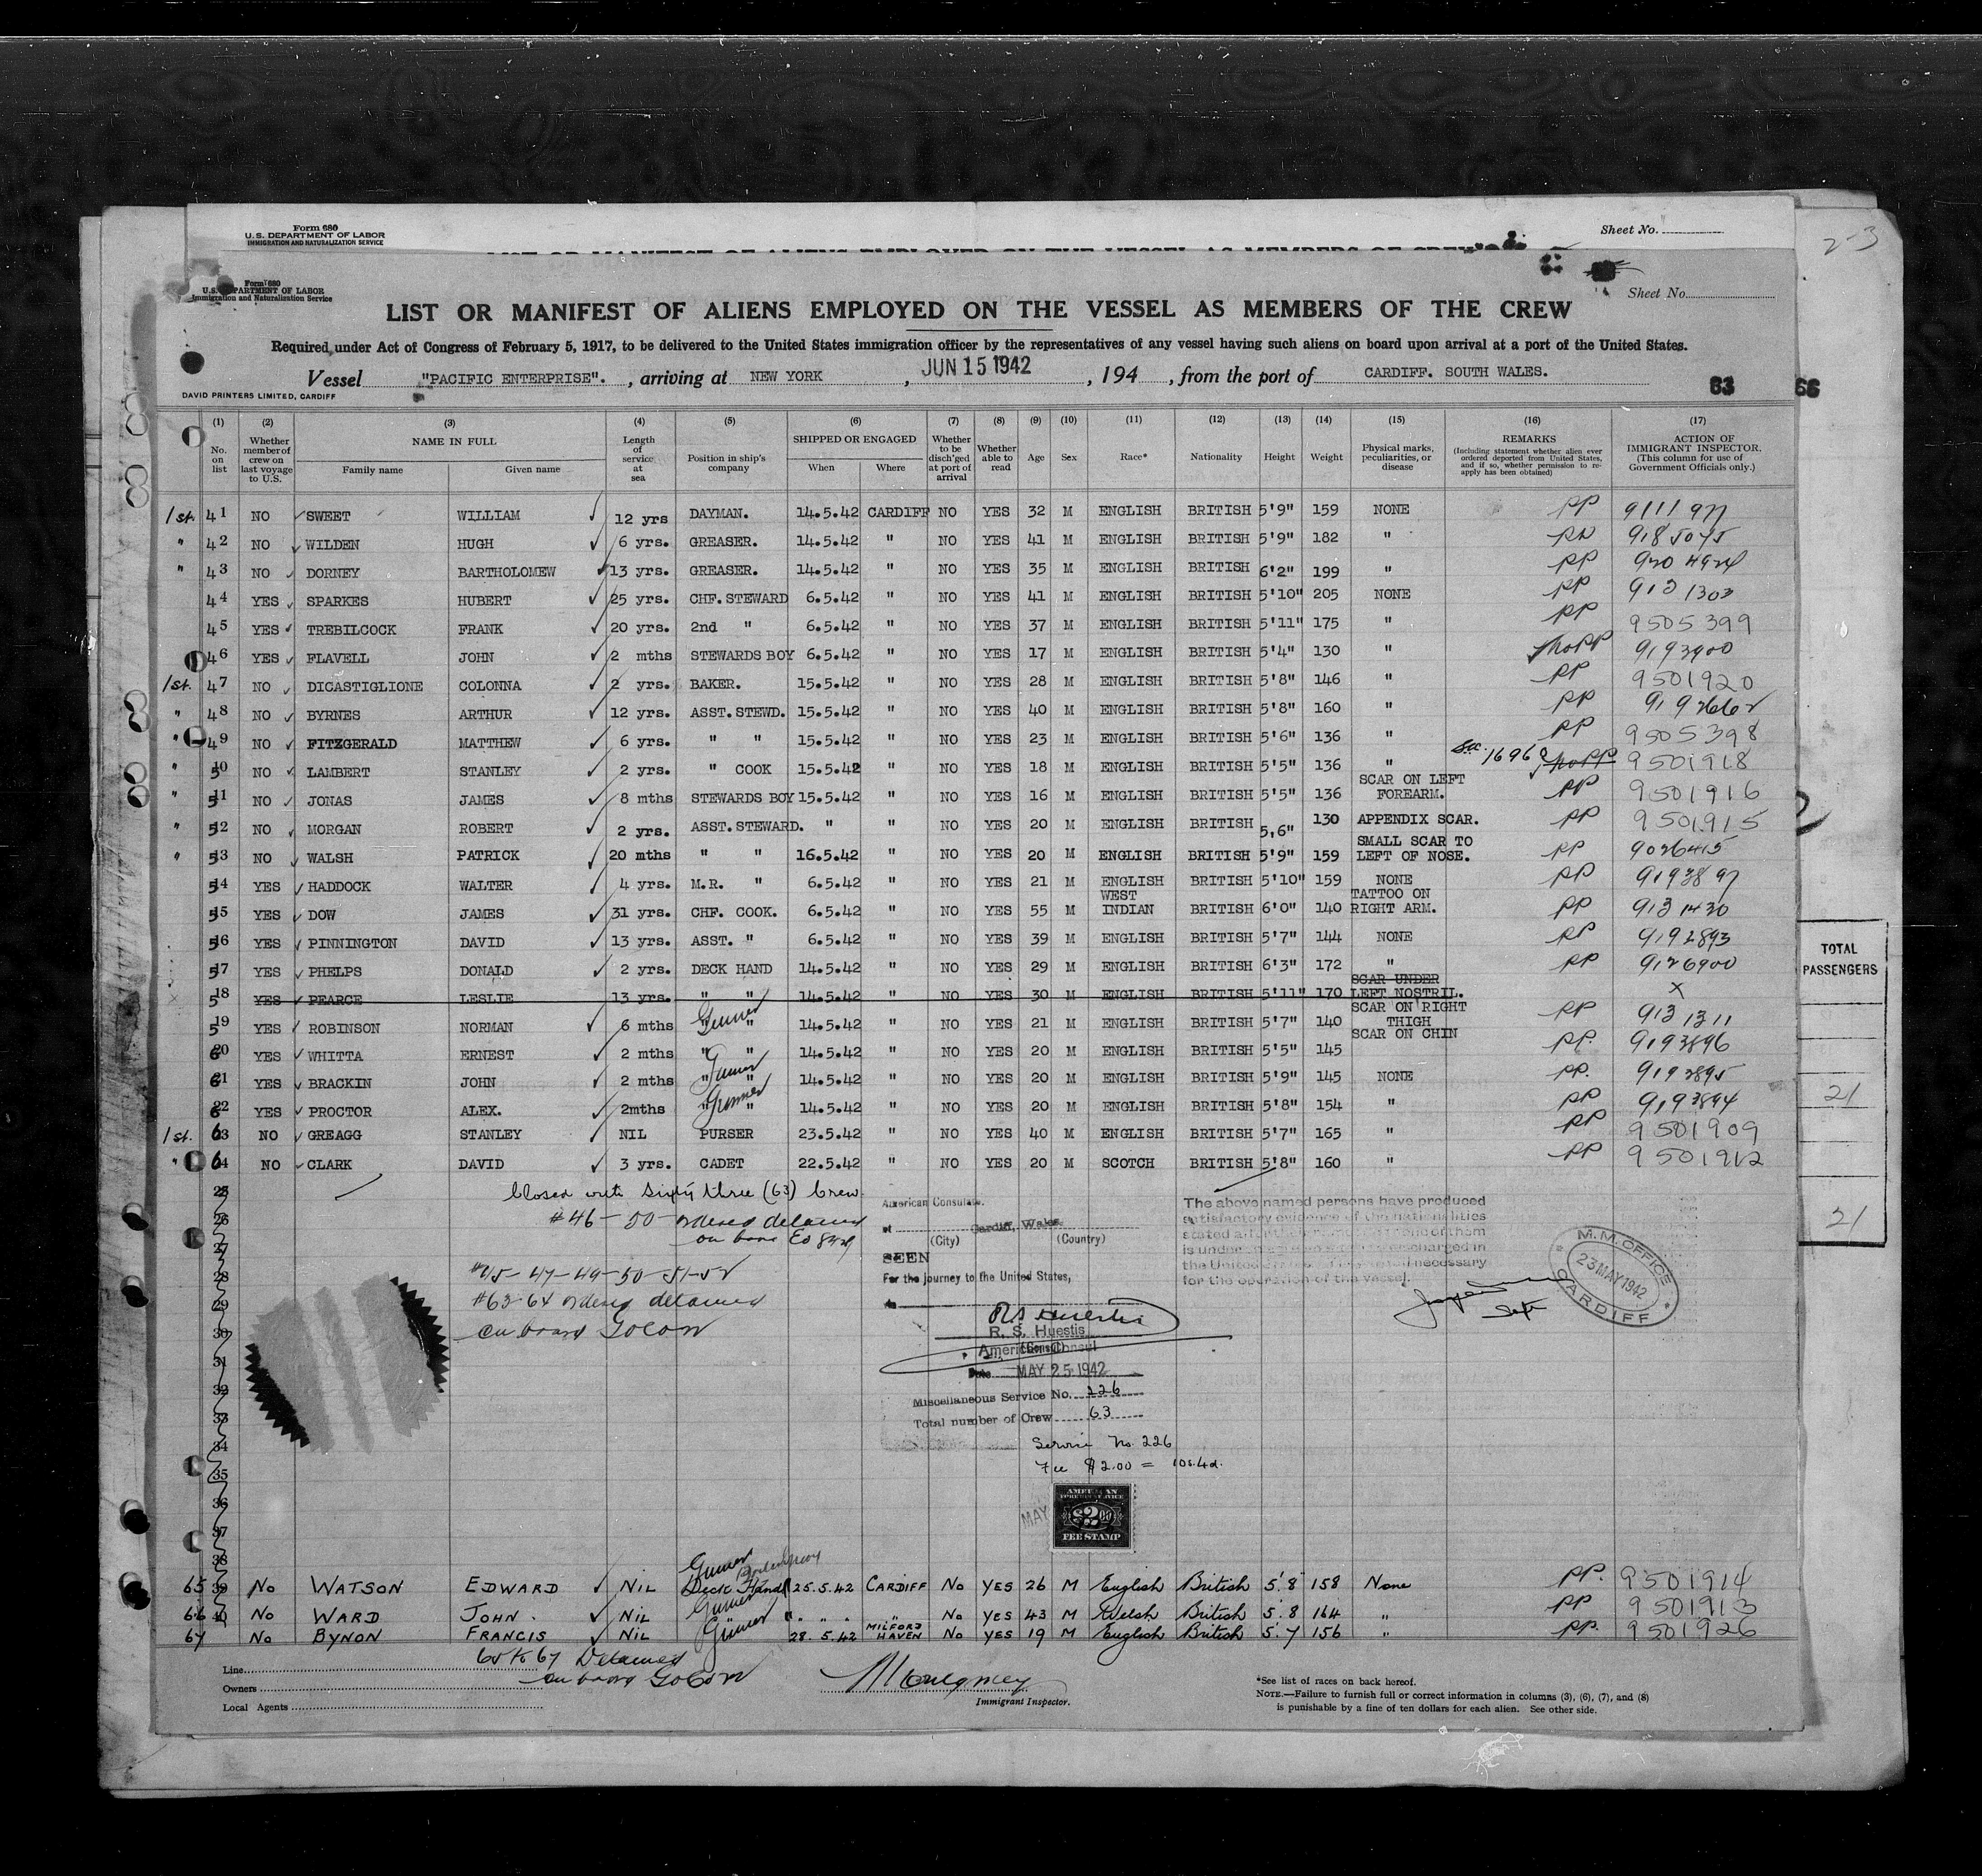 Form 680
U.S. DEPARTMENT OF LABOR
IMMIGRATION AND NATURALIZATION SERVICE
Sheet No.
2-3
Form 680
U.S. DEPARTMENT OF LABOR
Immigration and Naturalization Service
Sheet No.
LIST OR MANIFEST OF ALIENS EMPLOYED ON THE VESSEL AS MEMBERS OF THE CREW
Required under Act of Congress of February 5, 1917, to be delivered to the United States immigration officer by the representatives of any vessel having such aliens on board upon arrival at a port of the United States.
Vessel "PACIFIC ENTERPRISE". , arriving at NEW YORK , JUN 15 1942 , 194 , from the port of CARDIFF. SOUTH WALES.
DAVID PRINTERS LIMITED, CARDIFF
63 66
(1) No. on list (2) Whether member of crew on last voyage to U.S. (3) NAME IN FULL Family name Given name (4) Length of service at sea (5) Position in ship's company (6) SHIPPED OR ENGAGED When Where (7) Whether to be disch'ged at port of arrival (8) Whether able to read (9) Age (10) Sex (11) Race* (12) Nationality (13) Height (14) Weight (15) Physical marks, peculiarities, or disease (16) REMARKS (Including statement whether alien ever ordered deported from United States, and if so, whether permission to re-apply has been obtained) (17) ACTION OF IMMIGRANT INSPECTOR. (This column for use of Government Officials only.)
1st. 41 NO SWEET WILLIAM 12 yrs DAYMAN. 14.5.42 CARDIFF NO YES 32 M ENGLISH BRITISH 5'9" 159 NONE PP 9111977
" 42 NO WILDEN HUGH 6 yrs. GREASER. 14.5.42 " NO YES 41 M ENGLISH BRITISH 5'9" 182 " PP 9185075
" 43 NO DORNEY BARTHOLOMEW 13 yrs. GREASER. 14.5.42 " NO YES 35 M ENGLISH BRITISH 6'2" 199 " PP
44 YES SPARKES HUBERT 25 yrs. CHF. STEWARD 6.5.42 " NO YES 41 M ENGLISH BRITISH 5'10" 205 NONE PP 9131303
45 YES TREBILCOCK FRANK 20 yrs. 2nd " 6.5.42 " NO YES 37 M ENGLISH BRITISH 5'11" 175 " PP 9505399
46 YES FLAVELL JOHN 2 mths STEWARDS BOY 6.5.42 " NO YES 17 M ENGLISH BRITISH 5'4" 130 " No PP 9193900
1st. 47 NO DICASTIGLIONE COLONNA 2 yrs. BAKER. 15.5.42 " NO YES 28 M ENGLISH BRITISH 5'8" 146 " PP 9501920
" 48 NO BYRNES ARTHUR 12 yrs. ASST. STEWD. 15.5.42 " NO YES 40 M ENGLISH BRITISH 5'8" 160 " PP
" 49 NO FITZGERALD MATTHEW 6 yrs. " " 15.5.42 " NO YES 23 M ENGLISH BRITISH 5'6" 136 " PP 9505398
" 50 NO LAMBERT STANLEY 2 yrs. " COOK 15.5.42 " NO YES 18 M ENGLISH BRITISH 5'5" 136 " No PP 9501918
" 51 NO JONAS JAMES 8 mths STEWARDS BOY 15.5.42 " NO YES 16 M ENGLISH BRITISH 5'5" 136 SCAR ON LEFT FOREARM. PP 9501916
" 52 NO MORGAN ROBERT 2 yrs. ASST. STEWARD. " " NO YES 20 M ENGLISH BRITISH 5,6" 130 APPENDIX SCAR. PP 9501915
" 53 NO WALSH PATRICK 20 mths " " 16.5.42 " NO YES 20 M ENGLISH BRITISH 5'9" 159 SMALL SCAR TO LEFT OF NOSE. PP 9026415
54 YES HADDOCK WALTER 4 yrs. M.R. " 6.5.42 " NO YES 21 M ENGLISH BRITISH 5'10" 159 NONE PP 9193897
55 YES DOW JAMES 31 yrs. CHF. COOK. 6.5.42 " NO YES 55 M WEST INDIAN BRITISH 6'0" 140 TATTOO ON RIGHT ARM. PP 9131430
56 YES PINNINGTON DAVID 13 yrs. ASST. " 6.5.42 " NO YES 39 M ENGLISH BRITISH 5'7" 144 NONE PP 9192893
57 YES PHELPS DONALD 2 yrs. DECK HAND 14.5.42 " NO YES 29 M ENGLISH BRITISH 6'3" 172 " PP 9126900
58 YES PEARCE LESLIE 13 yrs. " " 14.5.42 " NO YES 30 M ENGLISH BRITISH 5'11" 170 SCAR UNDER LEFT NOSTRIL. X
59 YES ROBINSON NORMAN 6 mths " Gunner " 14.5.42 " NO YES 21 M ENGLISH BRITISH 5'7" 140 SCAR ON RIGHT THIGH PP 9131311
60 YES WHITTA ERNEST 2 mths " " 14.5.42 " NO YES 20 M ENGLISH BRITISH 5'5" 145 SCAR ON CHIN PP. 9193896
61 YES BRACKIN JOHN 2 mths " Gunner " 14.5.42 " NO YES 20 M ENGLISH BRITISH 5'9" 145 NONE PP. 9193895
62 YES PROCTOR ALEX. 2mths " Gunner " 14.5.42 " NO YES 20 M ENGLISH BRITISH 5'8" 154 " PP 9193894
1st. 63 NO GREAGG STANLEY NIL PURSER 23.5.42 " NO YES 40 M ENGLISH BRITISH 5'7" 165 " PP 9501909
" 64 NO CLARK DAVID 3 yrs. CADET 22.5.42 " NO YES 20 M SCOTCH BRITISH 5'8" 160 " PP 9501912
TOTAL PASSENGERS
21
21
25
26
27
28
29
30
31
32
33
34
35
36
37
38
Closed with Sixty three (63) Crew
#46-50-ordered detained
on board
#45-47-49-50-51-52
#63-64 ordered detained
on board
American Consulate.
at Cardiff, Wales.
(City) (Country)
SEEN
For the journey to the United States,
R. S. Huestis
American Consul
Date MAY 25 1942
Miscellaneous Service No. 226
Total number of Crew 63
Service No. 226
Fee $2.00 = 10s.4d.
The above named persons have produced
satisfactory evidence of the nationalities
for the operation of the vessel.
M.M. OFFICE
23 MAY 1942
CARDIFF
MAY
AMERICAN
FOREIGN SERVICE
$2.00
FEE STAMP
65 39 No WATSON EDWARD NIL Gunner Deck Hand 25.5.42 CARDIFF No YES 26 M English British 5'.8 158 None PP. 9501914
66 40 No WARD JOHN. NIL Gunner " " " " No YES 43 M Welsh British 5'.8 164 " PP 9501913
67 No BYNON FRANCIS NIL Gunner 28.5.42 MILFORD HAVEN No YES 19 M English British 5'.7 156 " PP. 9501926
65 to 67 Detained
on board
Line
Owners
Local Agents
Immigrant Inspector.
*See list of races on back hereof.
NOTE.—Failure to furnish full or correct information in columns (3), (6), (7), and (8)
is punishable by a fine of ten dollars for each alien. See other side.